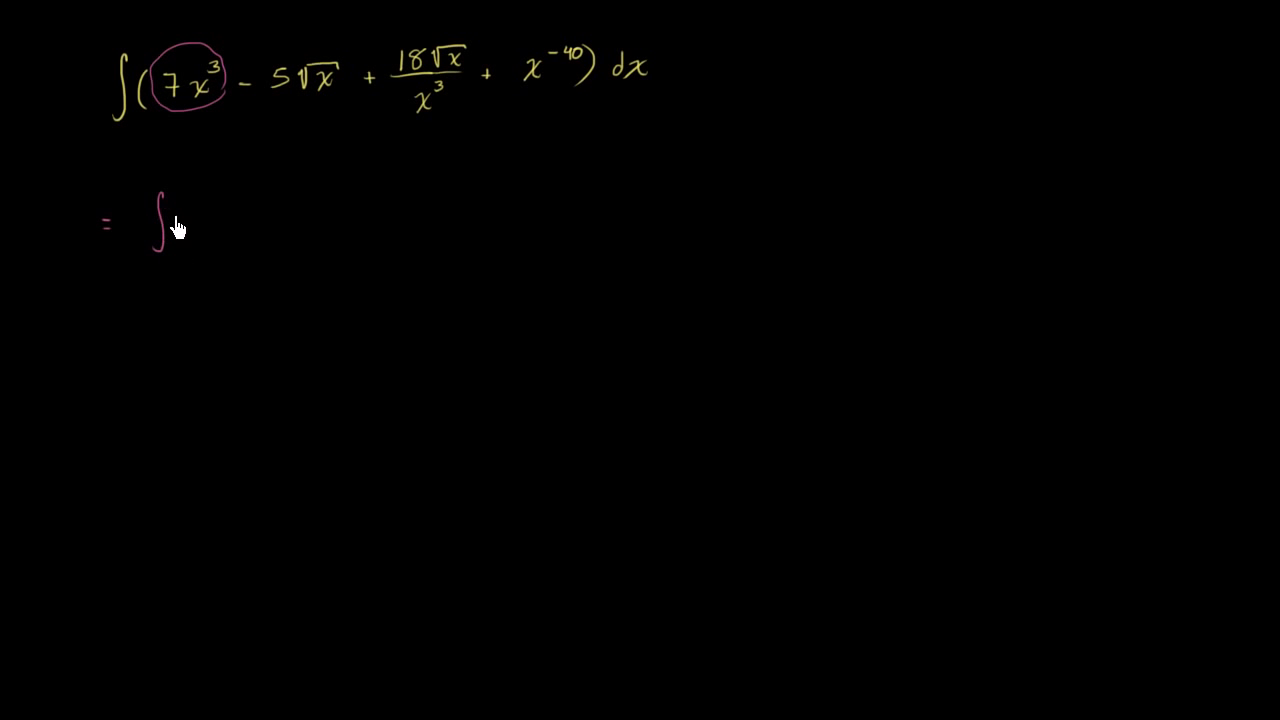 ∫(7x³ - 5√x + 18√x/x³ + x⁻⁴⁰) dx
= ∫